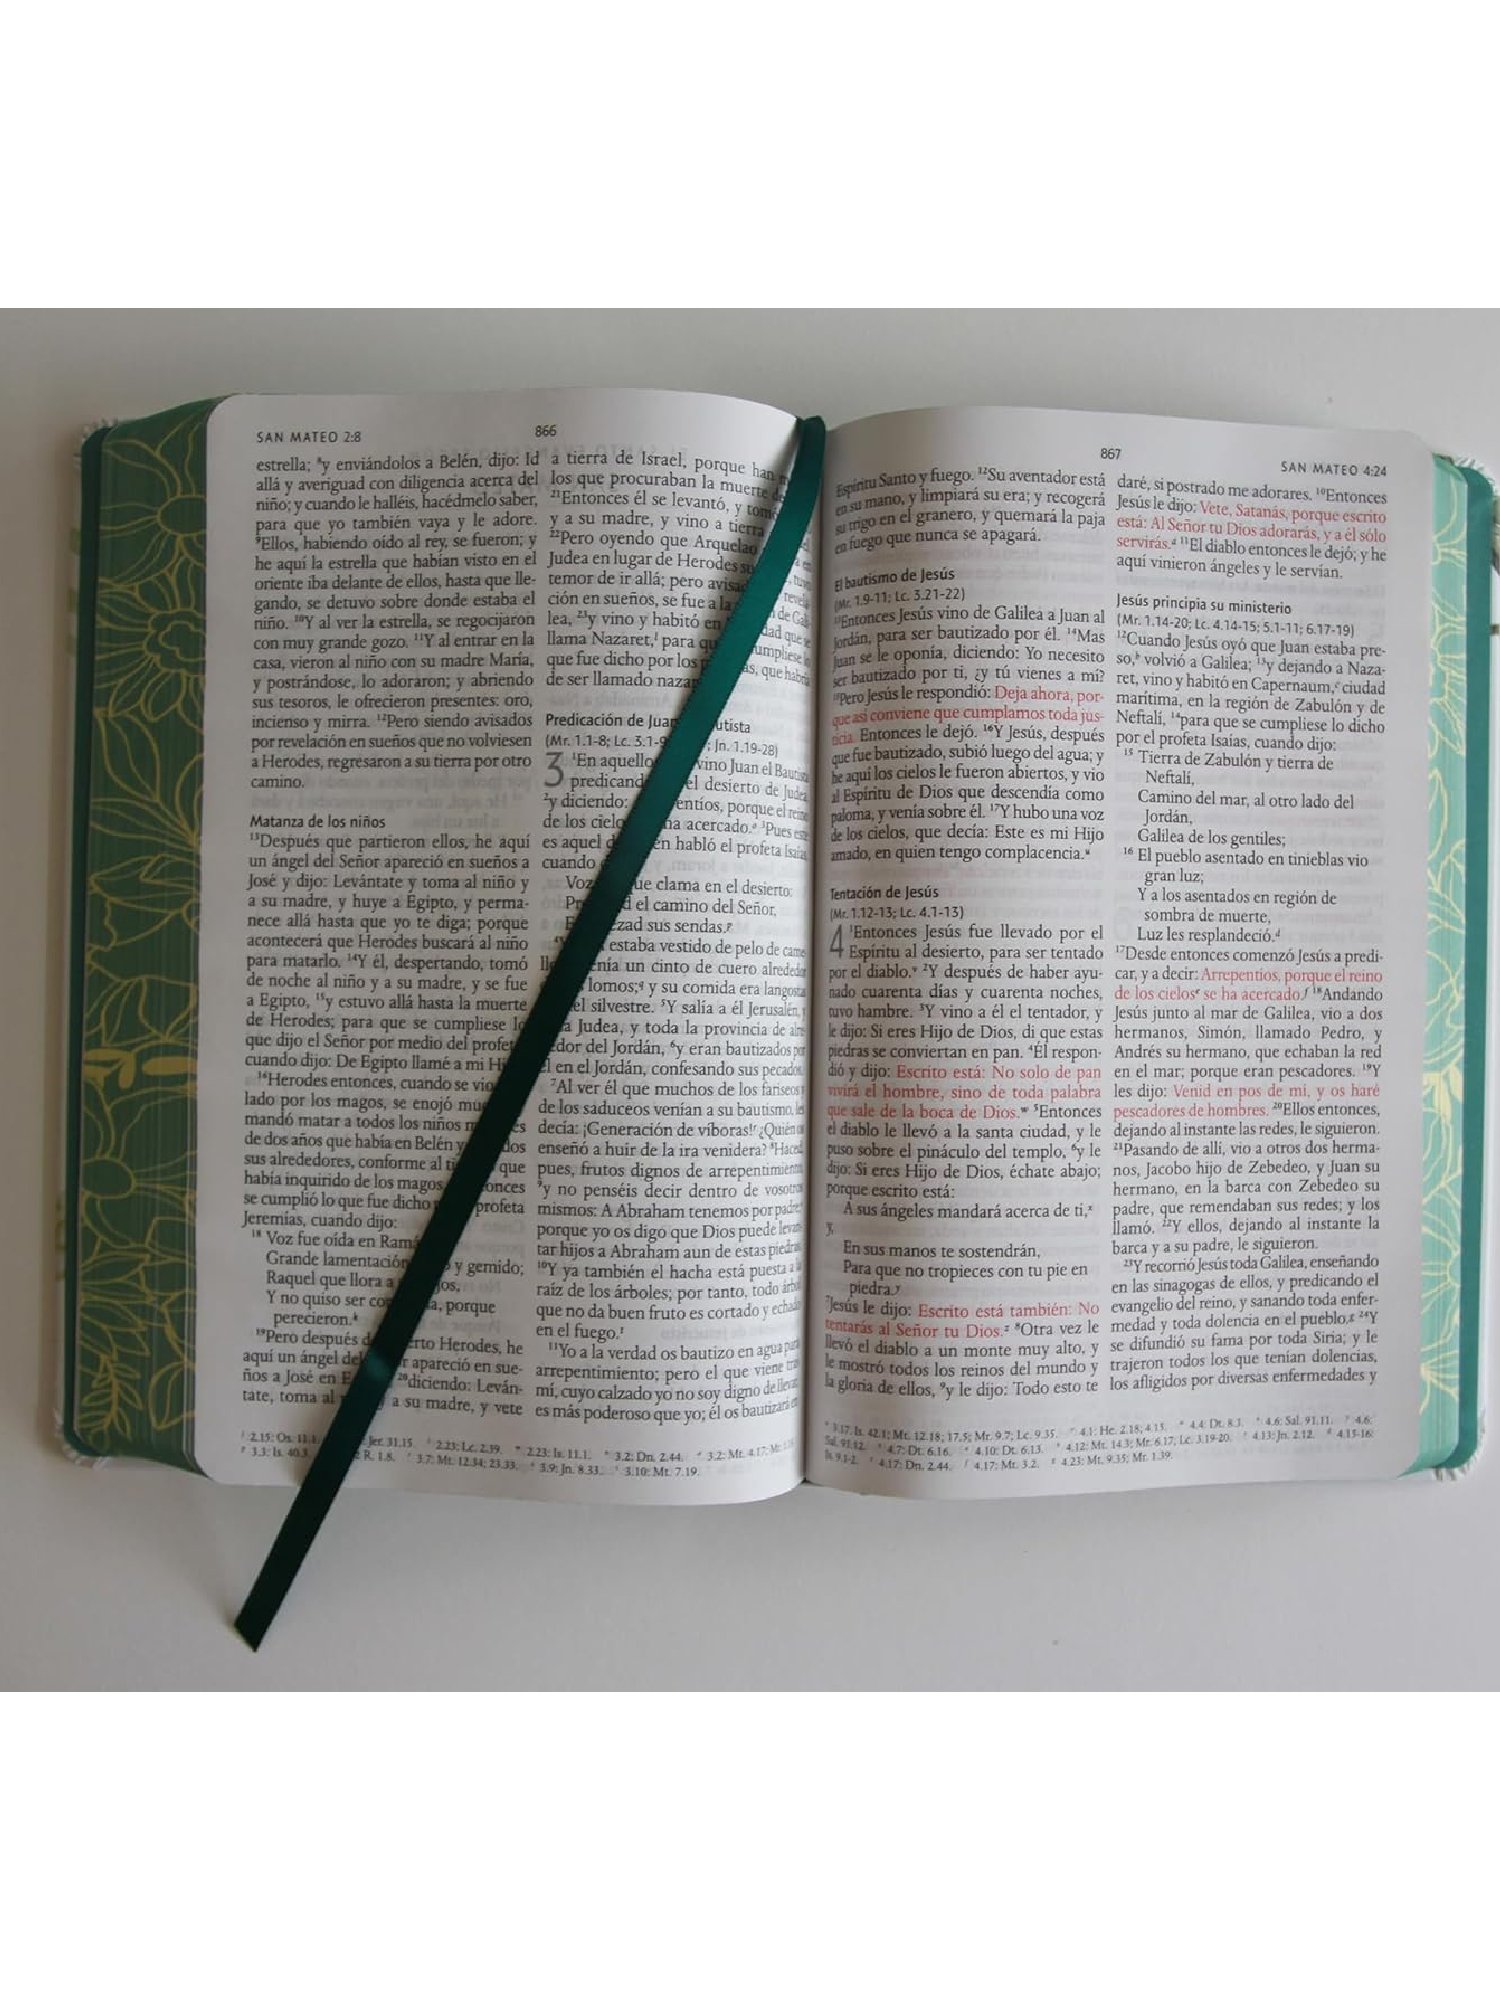 SAN MATEO 2:8
866
estrella; ⁸y enviándolos a Belén, dijo: Id
allá y averiguad con diligencia acerca del
niño; y cuando le halléis, hacédmelo saber,
para que yo también vaya y le adore.
⁹Ellos, habiendo oído al rey, se fueron; y
he aquí la estrella que habían visto en el
oriente iba delante de ellos, hasta que lle-
gando, se detuvo sobre donde estaba el
niño. ¹⁰Y al ver la estrella, se regocijaron
con muy grande gozo. ¹¹Y al entrar en la
casa, vieron al niño con su madre María,
y postrándose, lo adoraron; y abriendo
sus tesoros, le ofrecieron presentes: oro,
incienso y mirra. ¹²Pero siendo avisados
por revelación en sueños que no volviesen
a Herodes, regresaron a su tierra por otro
camino.
Matanza de los niños
¹³Después que partieron ellos, he aquí
un ángel del Señor apareció en sueños a
José y dijo: Levántate y toma al niño y
a su madre, y huye a Egipto, y perma-
nece allá hasta que yo te diga; porque
acontecerá que Herodes buscará al niño
para matarlo. ¹⁴Y él, despertando, tomó
de noche al niño y a su madre, y se fue
a Egipto, ¹⁵y estuvo allá hasta la muerte
de Herodes; para que se cumpliese lo
que dijo el Señor por medio del profet
cuando dijo: De Egipto llamé a mi H
¹⁶Herodes entonces, cuando se vio
lado por los magos, se enojó mu
mandó matar a todos los niños m es
de dos años que había en Belén y dos
sus alrededores, conforme al ti que
había inquirido de los magos onces
se cumplió lo que fue dicho profeta
Jeremías, cuando dijo:
¹⁸ Voz fue oída en Ramá
Grande lamentación y gemido;
Raquel que llora a jos,
Y no quiso ser co a, porque
perecieron.ᵏ
¹⁹Pero después d erto Herodes, he
aquí un ángel del r apareció en sue-
ños a José en E ²⁰diciendo: Leván-
tate, toma al y a su madre, y vete
a tierra de Israel, porque han
los que procuraban la muerte
²¹Entonces él se levantó, y tomó
y a su madre, y vino a tierra
²²Pero oyendo que Arquelao
Judea en lugar de Herodes su
temor de ir allá; pero avisad
ción en sueños, se fue a la de Gali-
lea, ²³y vino y habitó en dad que se
llama Nazaret,ˡ para qu umpliese lo
que fue dicho por los as, que habría
de ser llamado nazar
Predicación de Juan utista
(Mr. 1.1-8; Lc. 3.1-9 ; Jn. 1.19-28)
3 ¹En aquello vino Juan el Bautista
predicand el desierto de Judea,
²y diciendo: entíos, porque el reino
de los cielo ha acercado.ᵒ ³Pues este
es aquel d en habló el profeta Isaías,
cuando
Voz ue clama en el desierto:
Pr d el camino del Señor,
E zad sus sendas.ᵖ
⁴Y estaba vestido de pelo de came
lle enía un cinto de cuero alrededor
lomos;q y su comida era langosta
el silvestre. ⁵Y salía a él Jerusalén, y
a Judea, y toda la provincia de alre
dedor del Jordán, ⁶y eran bautizados por
él en el Jordán, confesando sus pecados.
⁷Al ver él que muchos de los fariseos y
de los saduceos venían a su bautismo, les
decía: ¡Generación de víboras!ʳ ¿Quién os
enseñó a huir de la ira venidera? ⁸Haced,
pues, frutos dignos de arrepentimiento,
⁹y no penséis decir dentro de vosotros
mismos: A Abraham tenemos por padre;
porque yo os digo que Dios puede levan-
tar hijos a Abraham aun de estas piedras.
¹⁰Y ya también el hacha está puesta a la
raíz de los árboles; por tanto, todo árbol
que no da buen fruto es cortado y echado
en el fuego.ᵗ
¹¹Yo a la verdad os bautizo en agua para
arrepentimiento; pero el que viene tras
mí, cuyo calzado yo no soy digno de llevar,
es más poderoso que yo; él os bautizará en
2.15: Os. 11.1. Jer. 31.15. 2.23: Lc. 2.39. 2.23: Is. 11.1. 3.2: Dn. 2.44. 3.2: Mt. 4.17; Mr.
3.3: Is. 40.3. R. 1.8. 3.7: Mt. 12.34; 23.33. 3.9: Jn. 8.33. 3.10: Mt. 7.19.
867
SAN MATEO 4:24
Espíritu Santo y fuego. ¹²Su aventador está
en su mano, y limpiará su era; y recogerá
su trigo en el granero, y quemará la paja
en fuego que nunca se apagará.
El bautismo de Jesús
(Mr. 1.9-11; Lc. 3.21-22)
¹³Entonces Jesús vino de Galilea a Juan al
Jordán, para ser bautizado por él. ¹⁴Mas
Juan se le oponía, diciendo: Yo necesito
ser bautizado por ti, ¿y tú vienes a mí?
¹⁵Pero Jesús le respondió: Deja ahora, por-
que así conviene que cumplamos toda jus-
ticia. Entonces le dejó. ¹⁶Y Jesús, después
que fue bautizado, subió luego del agua; y
he aquí los cielos le fueron abiertos, y vio
al Espíritu de Dios que descendía como
paloma, y venía sobre él. ¹⁷Y hubo una voz
de los cielos, que decía: Este es mi Hijo
amado, en quien tengo complacencia.ᵘ
Tentación de Jesús
(Mr. 1.12-13; Lc. 4.1-13)
4 ¹Entonces Jesús fue llevado por el
Espíritu al desierto, para ser tentado
por el diablo.ᵛ ²Y después de haber ayu-
nado cuarenta días y cuarenta noches,
tuvo hambre. ³Y vino a él el tentador, y
le dijo: Si eres Hijo de Dios, di que estas
piedras se conviertan en pan. ⁴Él respon-
dió y dijo: Escrito está: No solo de pan
vivirá el hombre, sino de toda palabra
que sale de la boca de Dios.ʷ ⁵Entonces
el diablo le llevó a la santa ciudad, y le
puso sobre el pináculo del templo, ⁶y le
dijo: Si eres Hijo de Dios, échate abajo;
porque escrito está:
A sus ángeles mandará acerca de ti,ˣ
y,
En sus manos te sostendrán,
Para que no tropieces con tu pie en
piedra.ʸ
⁷Jesús le dijo: Escrito está también: No
tentarás al Señor tu Dios.ᶻ ⁸Otra vez le
llevó el diablo a un monte muy alto, y
le mostró todos los reinos del mundo y
la gloria de ellos, ⁹y le dijo: Todo esto te
daré, si postrado me adorares. ¹⁰Entonces
Jesús le dijo: Vete, Satanás, porque escrito
está: Al Señor tu Dios adorarás, y a él sólo
servirás.ᵃ ¹¹El diablo entonces le dejó; y he
aquí vinieron ángeles y le servían.
Jesús principia su ministerio
(Mr. 1.14-20; Lc. 4.14-15; 5.1-11; 6.17-19)
¹²Cuando Jesús oyó que Juan estaba pre-
so,ᵇ volvió a Galilea; ¹³y dejando a Naza-
ret, vino y habitó en Capernaum,ᶜ ciudad
marítima, en la región de Zabulón y de
Neftalí, ¹⁴para que se cumpliese lo dicho
por el profeta Isaías, cuando dijo:
¹⁵ Tierra de Zabulón y tierra de
Neftalí,
Camino del mar, al otro lado del
Jordán,
Galilea de los gentiles;
¹⁶ El pueblo asentado en tinieblas vio
gran luz;
Y a los asentados en región de
sombra de muerte,
Luz les resplandeció.ᵈ
¹⁷Desde entonces comenzó Jesús a predi-
car, y a decir: Arrepentíos, porque el reino
de los cielosᵉ se ha acercado.ᶠ ¹⁸Andando
Jesús junto al mar de Galilea, vio a dos
hermanos, Simón, llamado Pedro, y
Andrés su hermano, que echaban la red
en el mar; porque eran pescadores. ¹⁹Y
les dijo: Venid en pos de mí, y os haré
pescadores de hombres. ²⁰Ellos entonces,
dejando al instante las redes, le siguieron.
²¹Pasando de allí, vio a otros dos herma-
nos, Jacobo hijo de Zebedeo, y Juan su
hermano, en la barca con Zebedeo su
padre, que remendaban sus redes; y los
llamó. ²²Y ellos, dejando al instante la
barca y a su padre, le siguieron.
²³Y recorrió Jesús toda Galilea, enseñando
en las sinagogas de ellos, y predicando el
evangelio del reino, y sanando toda enfer-
medad y toda dolencia en el pueblo.ᵍ ²⁴Y
se difundió su fama por toda Siria; y le
trajeron todos los que tenían dolencias,
los afligidos por diversas enfermedades y
3.17: Is. 42.1; Mt. 12.18; 17.5; Mr. 9.7; Lc. 9.35. 4.1: He. 2.18; 4.15. 4.4: Dt. 8.3. 4.6: Sal. 91.11. 4.6:
Sal. 91.12. 4.7: Dt. 6.16. 4.10: Dt. 6.13. 4.12: Mt. 14.3; Mr. 6.17; Lc. 3.19-20. 4.13: Jn. 2.12. 4.15-16:
Is. 9.1-2. 4.17: Dn. 2.44. 4.17: Mt. 3.2. 4.23: Mt. 9.35; Mr. 1.39.